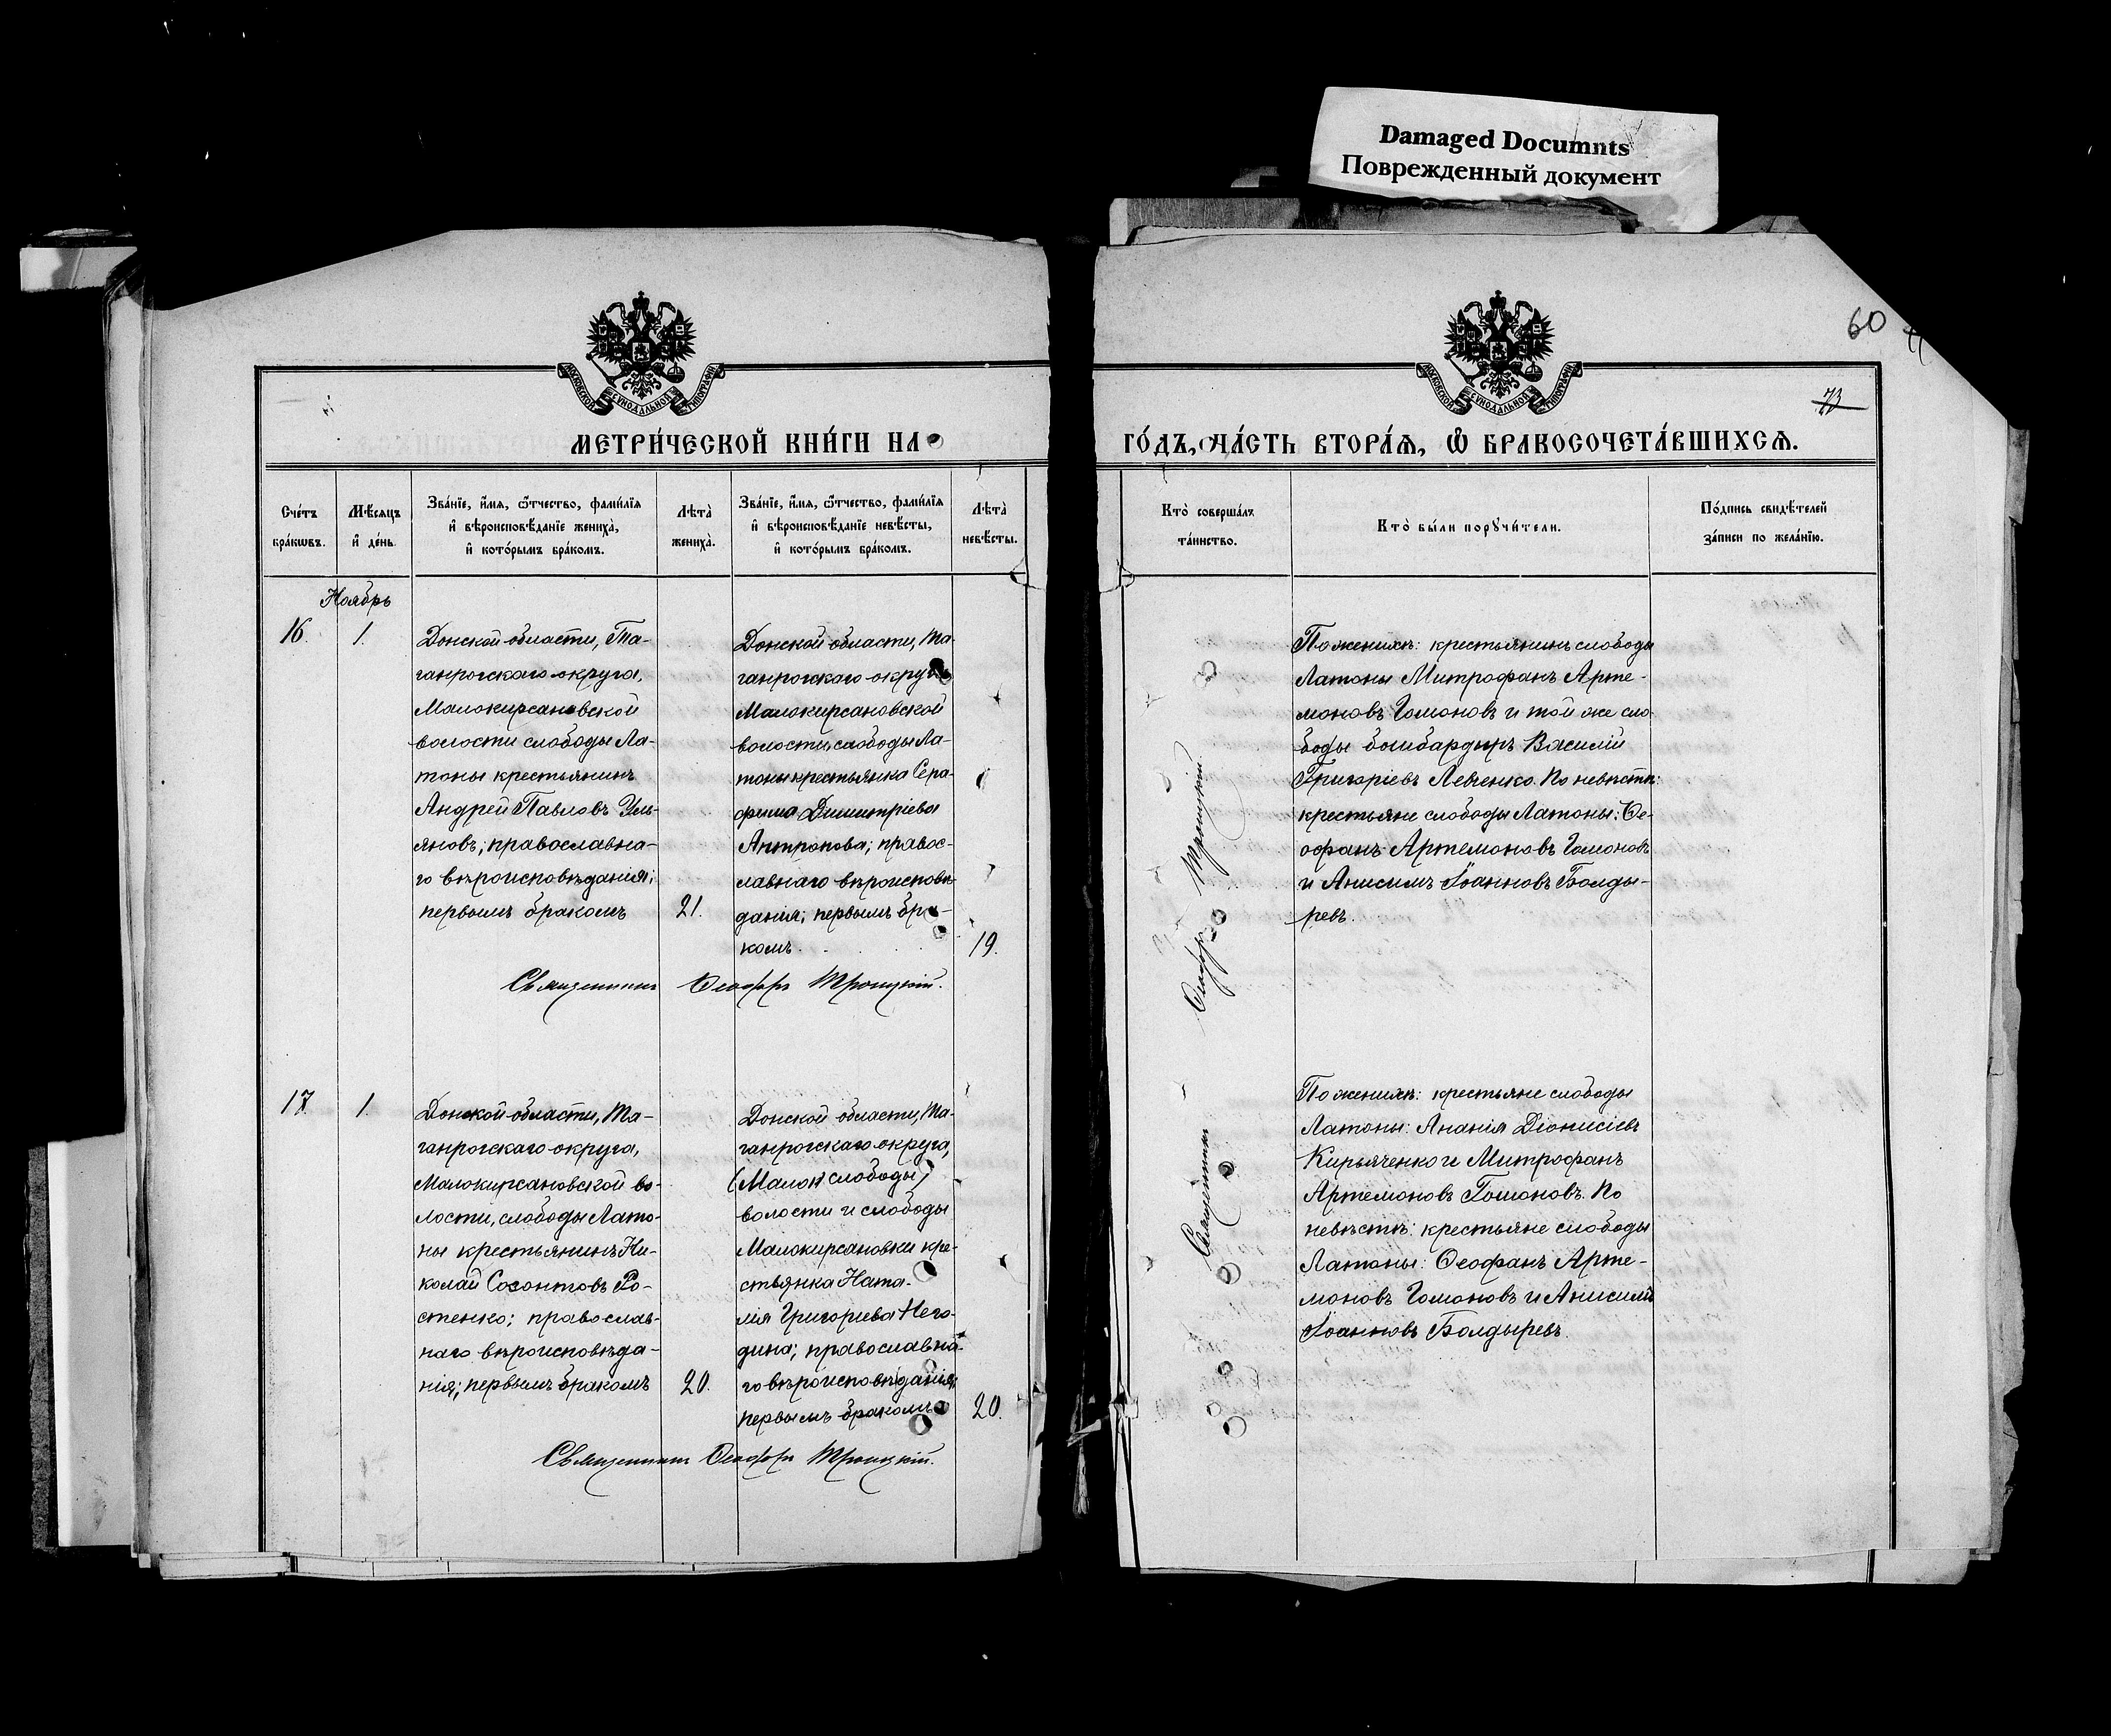 Damaged Documnts
Поврежденный документ
60
73
МОСКОВСКОЙ СѴНОДАЛЬНОЙ ТИПОГРАФІИ
МОСКОВСКОЙ СѴНОДАЛЬНОЙ ТИПОГРАФІИ
МЕТРИ́ЧЕСКОЙ КНИ́ГИ НА
ГО́ДЪ, ЧА́СТЬ ВТОРА́Ѧ, Ѽ БРАКОСОЧЕТА́ВШИХСѦ.
Сче́тъ
бра́кѡвъ.
Мѣ́сѧцъ
и҆ де́нь.
Зва́нїе, и҆́мѧ, ѻ҆́тчество, фами́лїѧ
и҆ вѣроисповѣ́данїе жениха̀,
и҆ кото́рымъ бра́комъ.
Лѣ́та̀
жениха̀.
Зва́нїе, и҆́мѧ, ѻ҆́тчество, фами́лїѧ
и҆ вѣроисповѣ́данїе невѣ́сты,
и҆ кото́рымъ бра́комъ.
Лѣ́та̀
невѣ́сты.
Кто̀ соверша́лъ
та́инство.
Кто̀ бы́ли порꙋчи́тели.
По́дпись свидѣ́телей
за́писи по жела́нїю.
Ноябрь
16.
1.
Донской области, Та-
ганрогскаго округа,
Малокирсановской
волости слободы Ла-
тоны крестьянинъ
Андрей Павловъ Уль-
яновъ; православна-
го вѣроисповѣданія;
первымъ бракомъ
21.
Донской области, Та-
ганрогскаго округа
Малокирсановской
волости, слободы Ла-
тоны крестьянка Сера-
фима Димитріева
Антропова; правос-
лавнаго вѣроисповѣ-
данія; первымъ бра-
комъ.
19.
Священникъ Ѳеодоръ Троицкій.
Священникъ Ѳеодоръ Троицкій.
По женихѣ: крестьянинъ слободы
Латоны Митрофанъ Арте-
моновъ Гомоновъ и той же сло-
боды бомбардиръ Василій
Григоріевъ Левченко. По невѣстѣ:
крестьяне слободы Латоны: Ѳе-
офанъ Артемоновъ Гомоновъ
и Анисимъ Іоанновъ Болды-
ревъ.
17
1.
Донской области, Та-
ганрогскаго округа,
Малокирсановской во-
лости, слободы Лато-
ны крестьянинъ Ни-
колай Созонтовъ Ро-
стенко; православ-
наго вѣроисповѣда-
нія; первымъ бракомъ
20.
Донской области, Та-
ганрогскаго округа,
(Малок слободы)
волости и слободы
Малокирсановки кре-
стьянка Ната-
лія Григорьева Него-
дина; православна-
го вѣроисповѣданія;
первымъ бракомъ
20.
Священникъ Ѳеодоръ Троицкій.
По женихѣ: крестьяне слободы
Латоны: Ананія Діонисіевъ
Кирьяченко и Митрофанъ
Артемоновъ Гомоновъ. По
невѣстѣ: крестьяне слободы
Латоны: Ѳеофанъ Арте-
моновъ Гомоновъ и Анисимъ
Іоанновъ Болдыревъ.